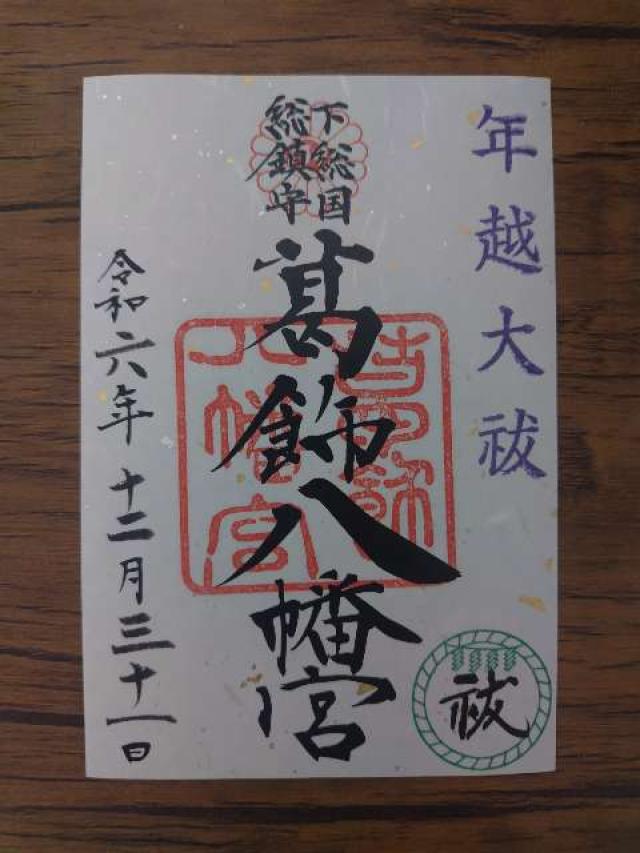 年越大祓
下総国
総鎮守
葛飾八幡宮
葛飾八幡宮
令和六年十二月三十一日
祓